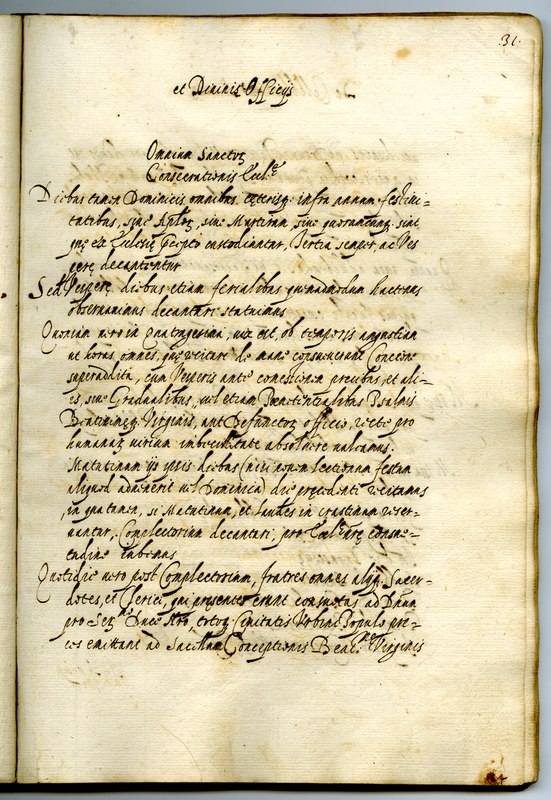 31.
et Diuinis Officijs
Omnium Sanctoȝ
Consecrationis Eccl.ę
Diebus tamen Dominicis omnibus, cęterisq; infra annum festiui=
tatibus, siue Aploȝ, siue Martirum, siue quorumcunq; sint
quę ex Eccl.ię pręcepto custodiuntur, Tertia semper, ac Ves
perę decantentur
Sed Vesperę diebus etiam ferialibus quemadmodum hactenus
obseruauimus decantari statuimus
Quoniam uero in Quatragesima, uix est, ob temporis angustiam
ut horas omnes, quę recitare de mane consueuerunt Concione
superaddita, cum Vesperis ante comestionem precibus, et ali=
is, siue Gradualibus, uel etiam Pœnitentialibus Psalmis
Beatissimęq; Virginis, aut Defunctoȝ officio, recte pro
humanaȝ uirium imbecillitate absoluere ualeamus.
Matutinum ijs ipsis diebus (nisi nouem lectionum festum
aliquod aduenerit uel Dominica) die pręcedenti recitamus
in qua tamen, si Matutinum, et laudes in crastinum reser=
uantur, Complectorium decantari, pro Eccl.ę nrę consue=
tudine iubemus
Quotidie uero post Complectorium, fratres omnes alijq; Sacer=
dotes, et Clerici, qui presentes erunt consuetas ad Dnum
pro Ser.mo Duce Nro, totoq; Ciuitatis Urbini Populo pre=
ces emittant ad Sacellum Conceptionis Beat.mę Virginis